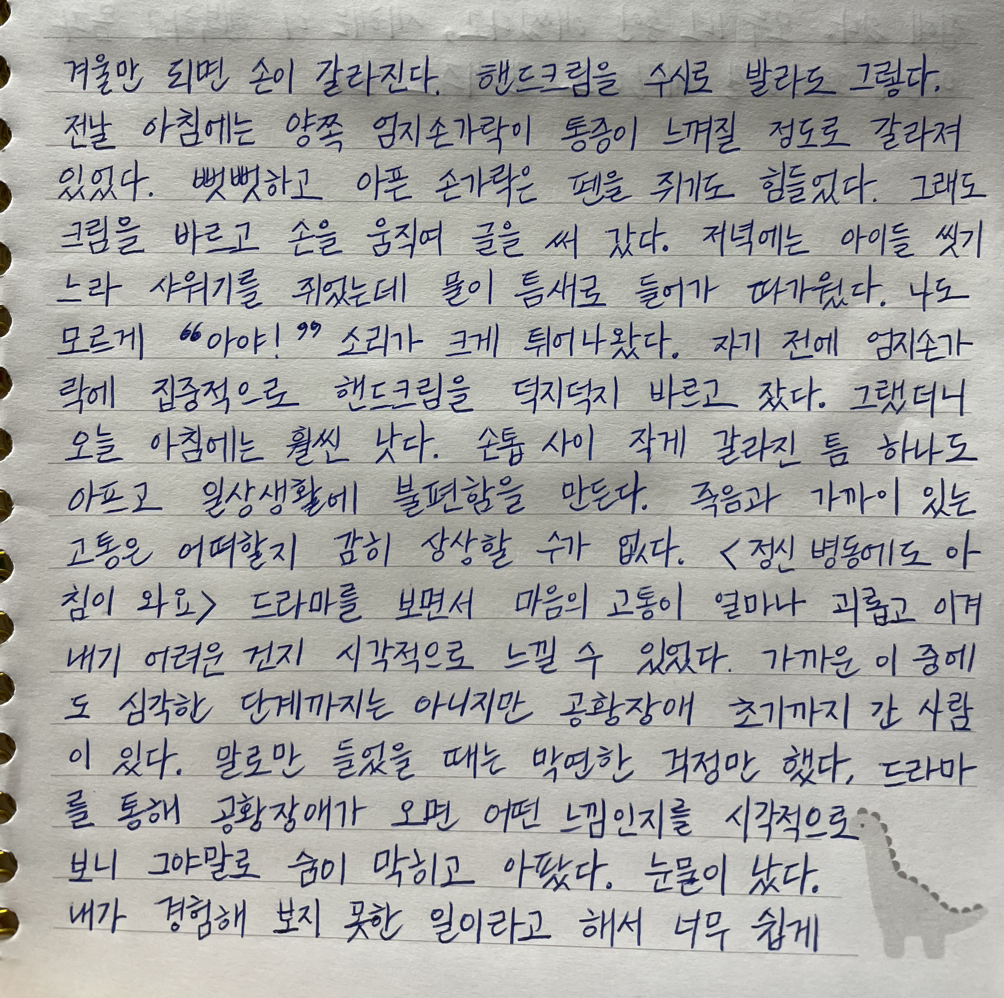 겨울만 되면 손이 갈라진다. 핸드크림을 수시로 발라도 그렇다.
전날 아침에는 양쪽 엄지손가락이 통증이 느껴질 정도로 갈라져
있었다. 뻣뻣하고 아픈 손가락은 펜을 쥐기도 힘들었다. 그래도
크림을 바르고 손을 움직여 글을 써 갔다. 저녁에는 아이들 씻기
느라 샤워기를 쥐었는데 물이 틈새로 들어가 따가웠다. 나도
모르게 “아야!” 소리가 크게 튀어나왔다. 자기 전에 엄지손가
락에 집중적으로 핸드크림을 덕지덕지 바르고 잤다. 그랬더니
오늘 아침에는 훨씬 낫다. 손톱 사이 작게 갈라진 틈 하나도
아프고 일상생활에 불편함을 만든다. 죽음과 가까이 있는
고통은 어떠할지 감히 상상할 수가 없다. <정신 병동에도 아
침이 와요> 드라마를 보면서 마음의 고통이 얼마나 괴롭고 이겨
내기 어려운 건지 시각적으로 느낄 수 있었다. 가까운 이 중에
도 심각한 단계까지는 아니지만 공황장애 초기까지 간 사람
이 있다. 말로만 들었을 때는 막연한 걱정만 했다. 드라마
를 통해 공황장애가 오면 어떤 느낌인지를 시각적으로
보니 그야말로 숨이 막히고 아팠다. 눈물이 났다.
내가 경험해 보지 못한 일이라고 해서 너무 쉽게